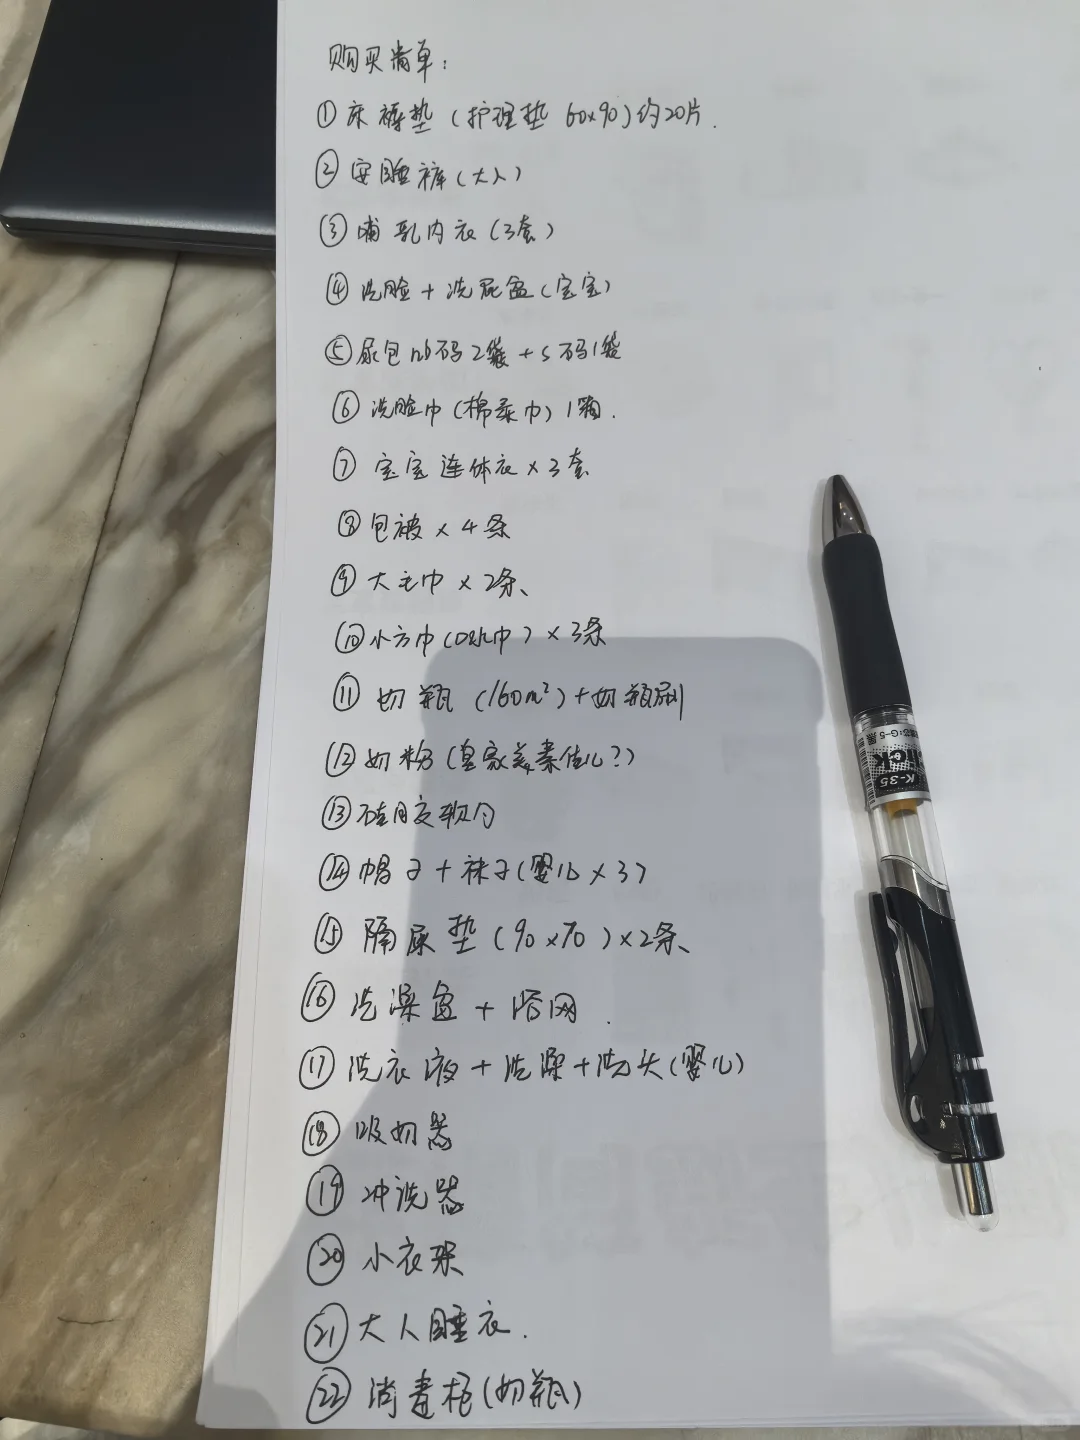 购买清单：
①床褥垫（护理垫 60x90）约20片.
②安睡裤（大人）
③哺乳内衣（3套）
④洗脸+洗屁盆（宝宝）
⑤尿包nb码2袋+s码1袋
⑥洗脸巾（棉柔巾）1箱.
⑦宝宝连体衣×3套
⑧包被×4条
⑨大毛巾×2条、
⑩小方巾（口水巾）×3条
⑪奶瓶（160m²）+奶瓶刷
⑫奶粉（皇家美素佳儿？）
⑬硅胶软勺
⑭帽子+袜子（婴儿×3）
⑮隔尿垫（90×70）×2条、
⑯洗澡盆+浴网.
⑰洗衣液+洗澡+洗头（婴儿）
⑱吸奶器
⑲冲洗器
⑳小衣架
㉑大人睡衣.
㉒消毒柜（奶瓶）
K-35